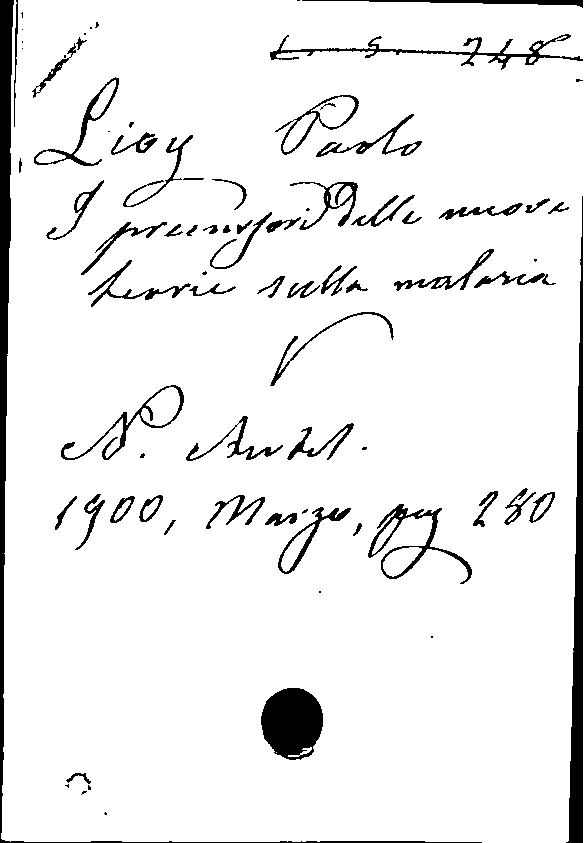 L. S. 248
Lioy Paolo
I precursori delle nuove
teorie sulla malaria
N. Antol.
1900, Marzo, pag 280